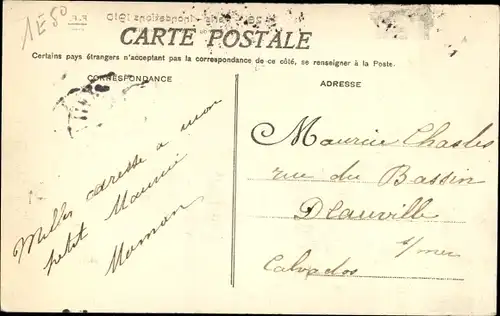 1E50
CARTE POSTALE
Certains pays étrangers n'acceptant pas la correspondance de ce côté, se renseigner à la Poste.
CORRESPONDANCE
ADRESSE
Milles adresse a mon
petit Maurice
Maman
Maurice Chasles
rue du Bassin
Deauville
s/mer
Calvados